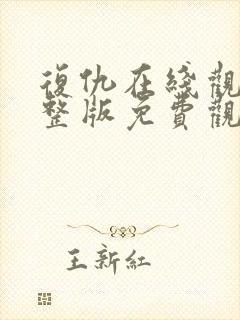 復仇在綫觀
整版免費觀
王新紅